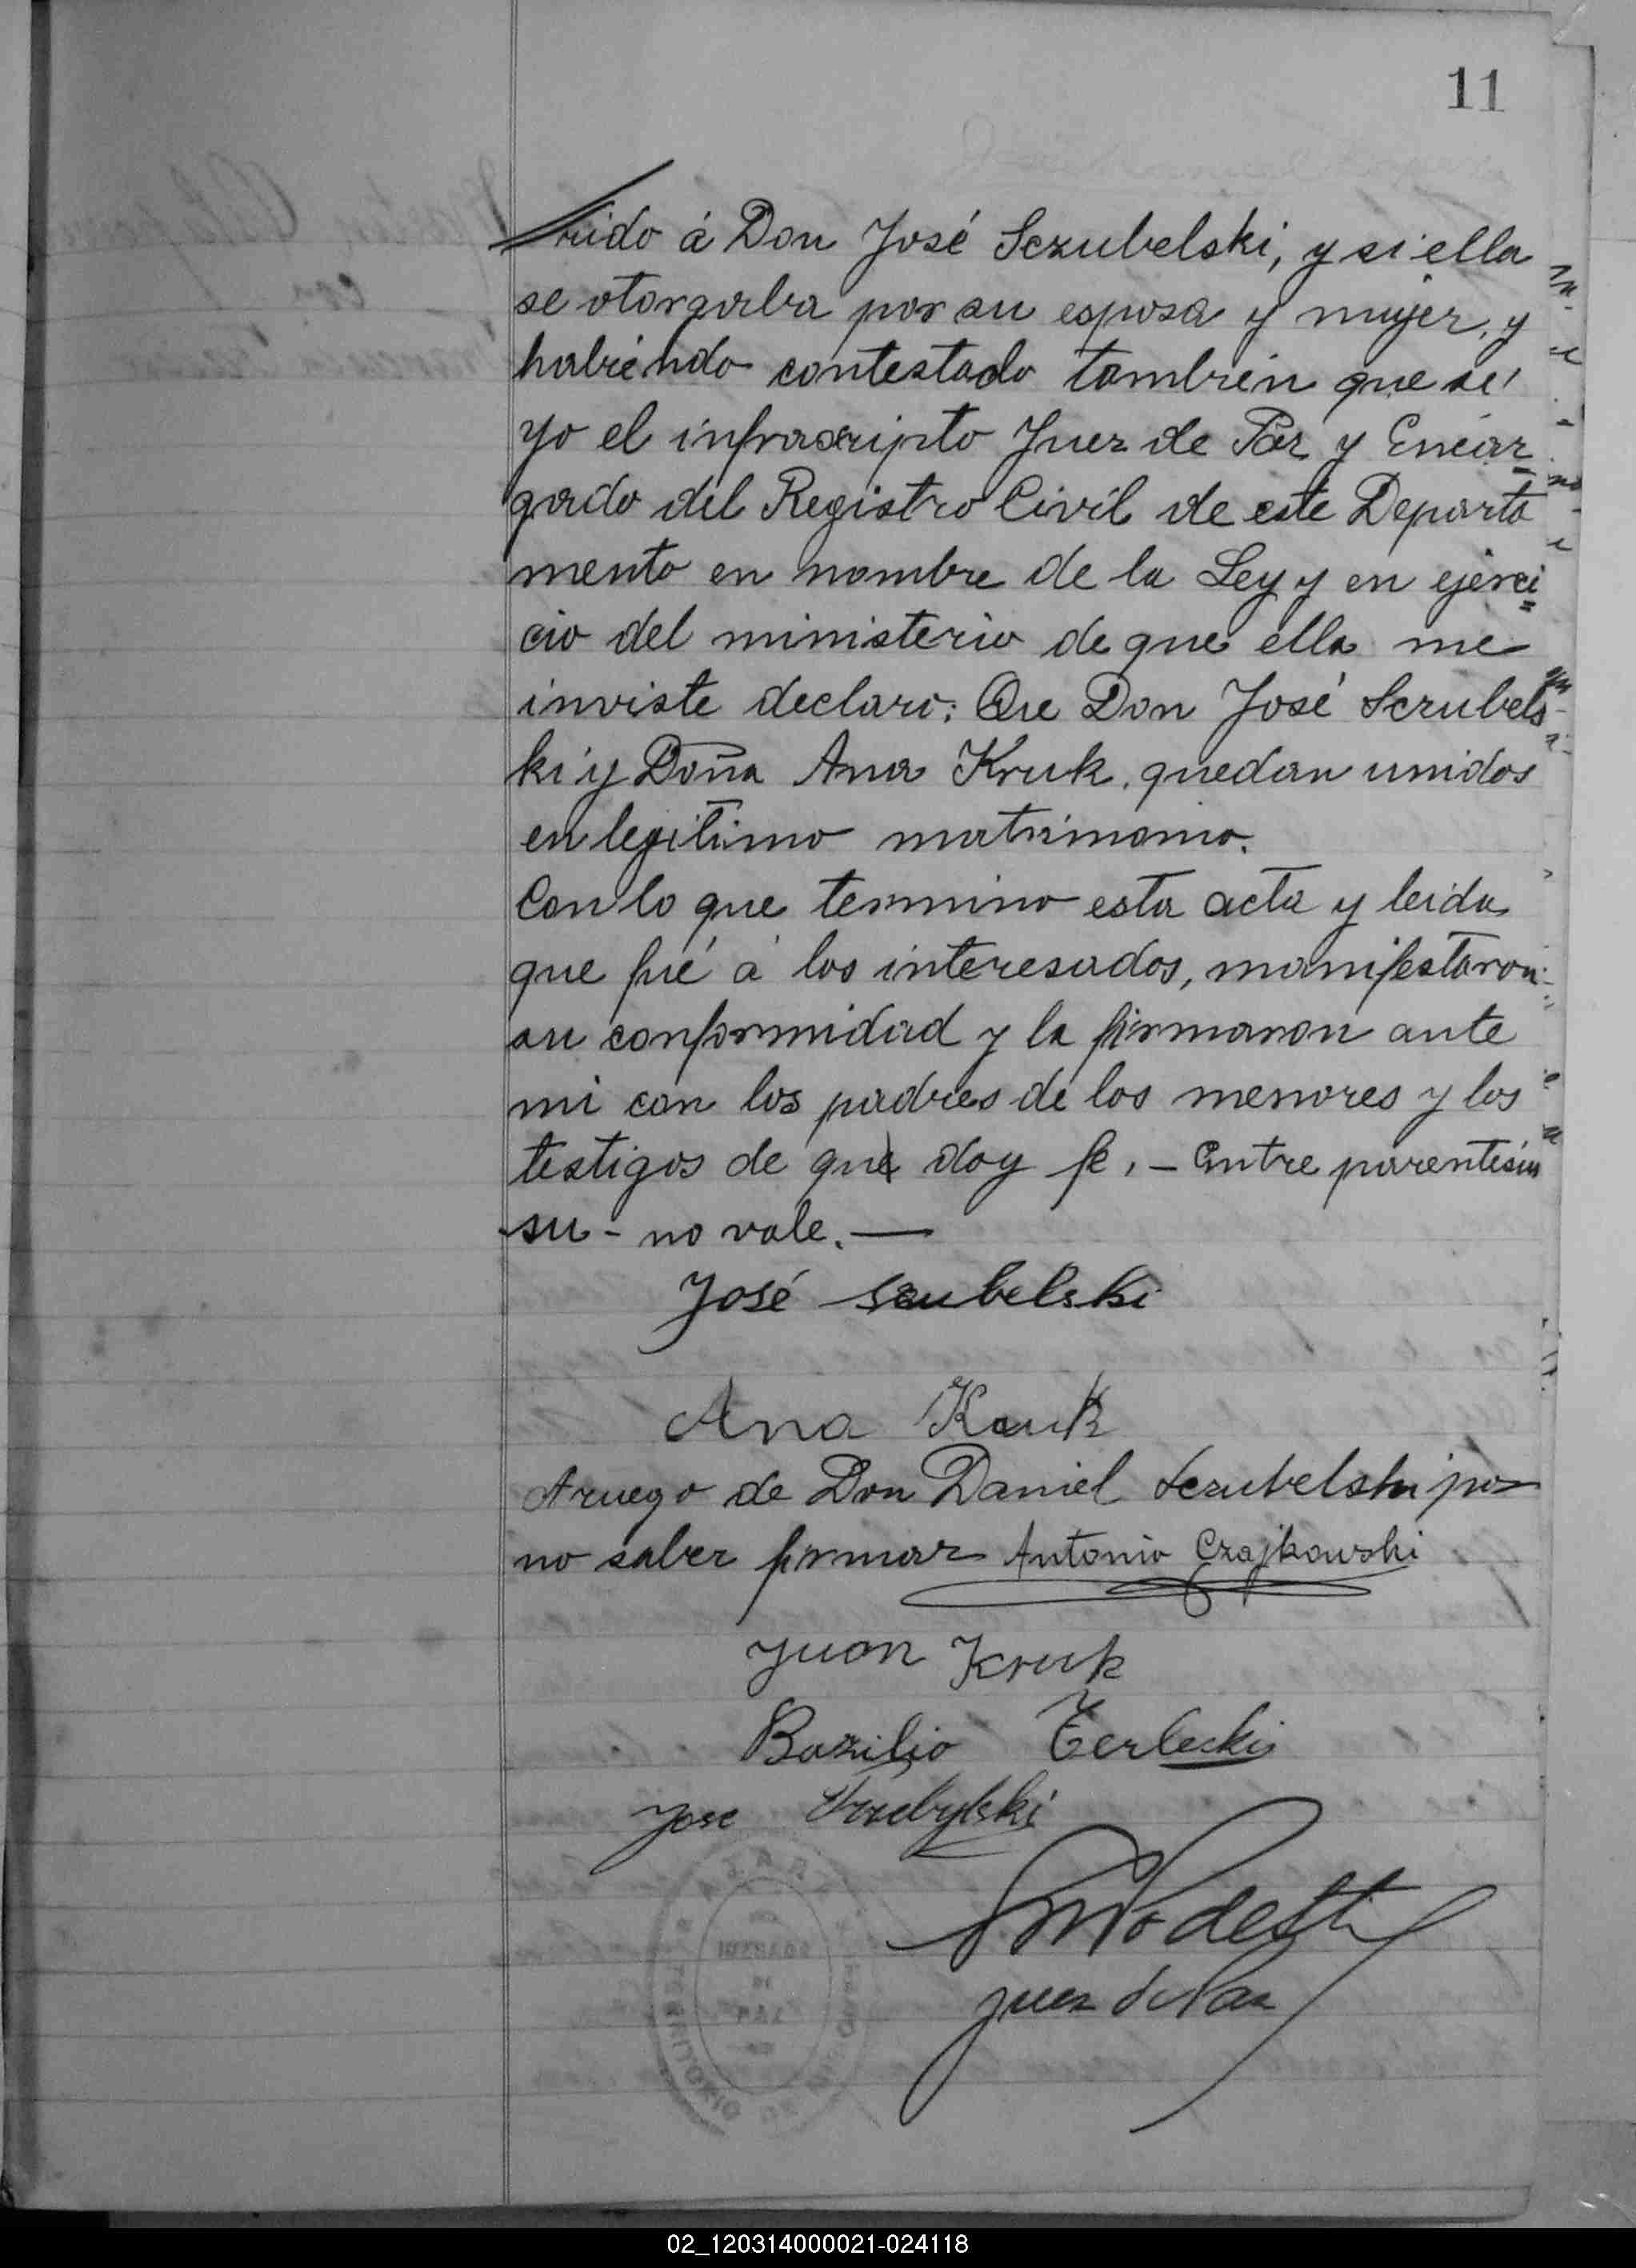 11
rido á Don José Sczubelski, y si ella
se otorgaba por su esposa y mujer, y
habiendo contestado tambien que si
yo el infrascripto Juez de Paz y Encar
gado del Registro Civil de este Departa
mento en nombre de la Ley y en ejerci
cio del ministerio de que ella me
inviste declaro: Que Don José Sczubels
ki y Doña Ana Kruk, quedan unidos
en legitimo matrimonio.
Con lo que termino esta acta y leida
que fué á los interesados, manifestaron
su conformidad y la firmaron ante
mi con los padres de los menores y los
testigos de que doy fé. - Entre parentesis
su - no vale. —
José Szubelski
Ana Kruk
A ruego de Don Daniel Sczubelski por
no saber firmar Antonio Czajkowski
Juan Kruk
Bazilio Terlecki
Jose
Juez de Paz
TERRITORIO DE
02_120314000021-024118